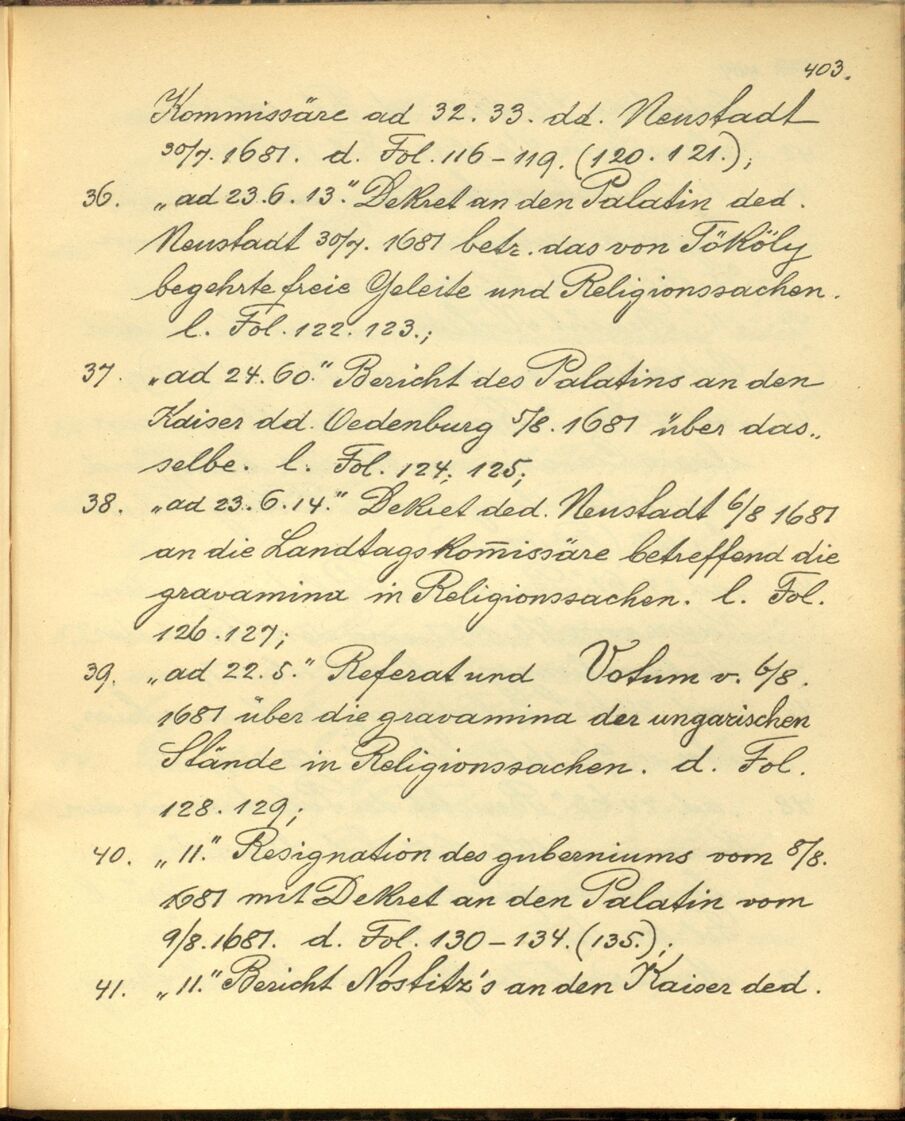 403.
Kommissäre ad 32. 33. dd. Neustadt
30/7. 1681. d. Fol. 116 – 119. (120. 121.);
36. „ad 23. 6. 13.“ Dekret an den Palatin ded.
Neustadt 30/7. 1681 betr. das von Tököly
begehrte freie Geleite und Religionssachen.
l. Fol. 122. 123.;
37. „ad 24. 60.“ Bericht des Palatins an den
Kaiser dd. Oedenburg 5/8. 1681 über das„
selbe. l. Fol. 124; 125;
38. „ad 23. 6. 14.“ Dekret ded. Neustadt 6/8 1681
an die Landtagskom̅issäre betreffend die
gravamina in Religionssachen. l. Fol.
126. 127;
39. „ad 22. 5.“ Referat und Votum v. 6/8.
1681 über die gravamina der ungarischen
Stände in Religionssachen. d. Fol.
128. 129;
40. „11.“ Resignation des guberniums vom 8/8.
1681 mit Dekret an den Palatin vom
9/8. 1681. d. Fol. 130 – 134. (135.);
41. „11.“ Bericht Nostitz's an den Kaiser ded.